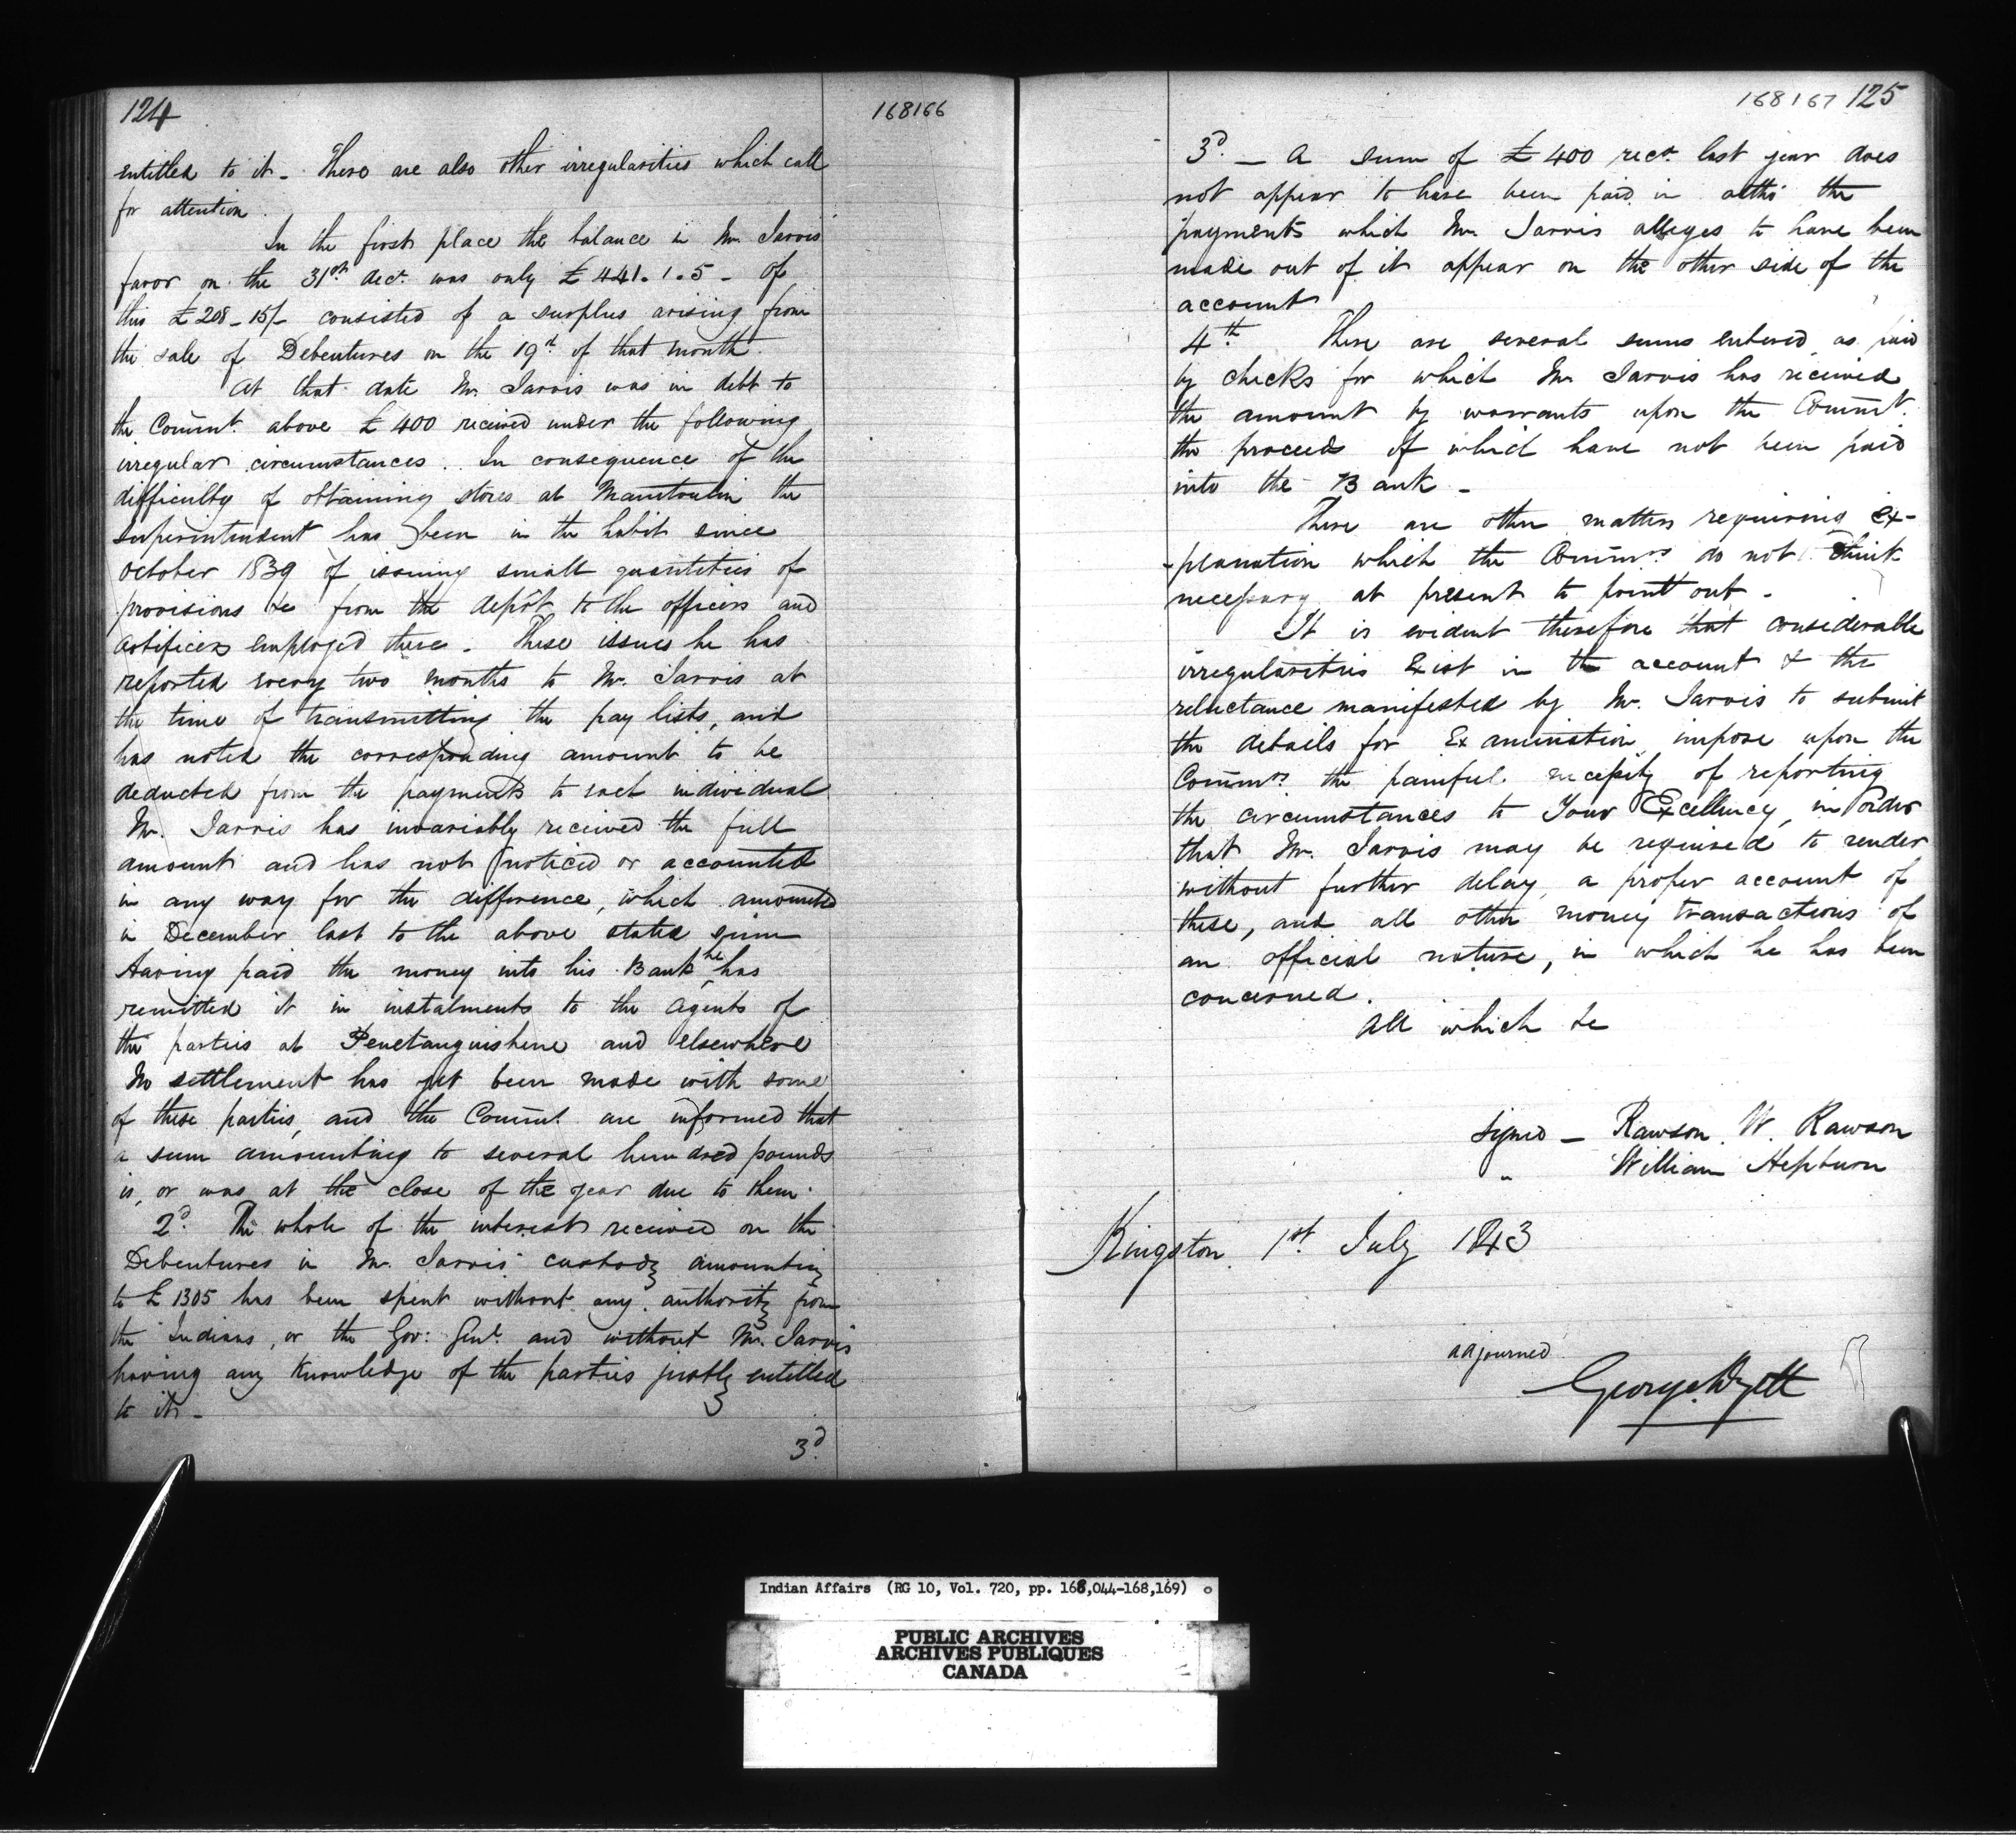 124
168166
entitled to it - There are also other irregularities which call
for attention.
In the first place the balance in Mr. Jarvis'
favor on the 31st Decr. was only £441.1.5 - Of
this £208-15/- consisted of a surplus arising from
the sale of Debentures on the 19th of that month.
At that date Mr. Jarvis was in debt to
the Commt. above £400 received under the following
irregular circumstances. In consequence of the
difficulty of obtaining stores at Manitoulin the
Superintendent has been in the habit since
October 1839 of issuing small quantities of
provisions &c from the depôt to the officers and
artificers employed there. These issues he has
reported every two months to Mr. Jarvis at
the time of transmitting the pay lists, and
has noted the corresponding amount to be
deducted from the payments to each individual
Mr. Jarvis has invariably received the full
amount and has not noticed or accounted
in any way for the difference, which amounted
in December last to the above stated sum
Having paid the money into his Bank he has
remitted it in instalments to the agents of
the parties at Penetanguishene and elsewhere
No settlement has yet been made with some
of these parties, and the Commt. are informed that
a sum amounting to several hundred pounds
is, or was at the close of the year due to them.
2d. The whole of the interest received on the
Debentures in Mr. Jarvis' custody amounting
to £1305 has been spent without any authority from
the Indians, or the Gov: Genl. and without Mr. Jarvis
having any knowledge of the parties justly entitled
to it -
3d
168167 125
3d. - A sum of £400 recd. last year does
not appear to have been paid in altho' the
payments which Mr. Jarvis alleges to have been
made out of it appear on the other side of the
account
4th There are several sums entered as paid
by checks for which Mr. Jarvis has received
the amount by warrants upon the Commt.
the proceeds of which have not been paid
into the Bank -
There are other matters requiring ex-
-planation which the Commrs do not think
necessary at present to point out -
It is evident therefore that considerable
irregularities exist in the account & the
reluctance manifested by Mr. Jarvis to submit
the details for Examination impose upon the
Commrs the painful necessity of reporting
the circumstances to Your Excellency, in order
that Mr. Jarvis may be required to render
without further delay a proper account of
these, and all other money transactions of
an official nature, in which he has been
concerned.
All which &c
Signed - Rawson. W. Rawson
" William Hepburn
Kingston 1st July 1843
adjourned
George Vyett
Indian Affairs (RG 10, Vol. 720, pp. 168,044-168,169)
PUBLIC ARCHIVES
ARCHIVES PUBLIQUES
CANADA